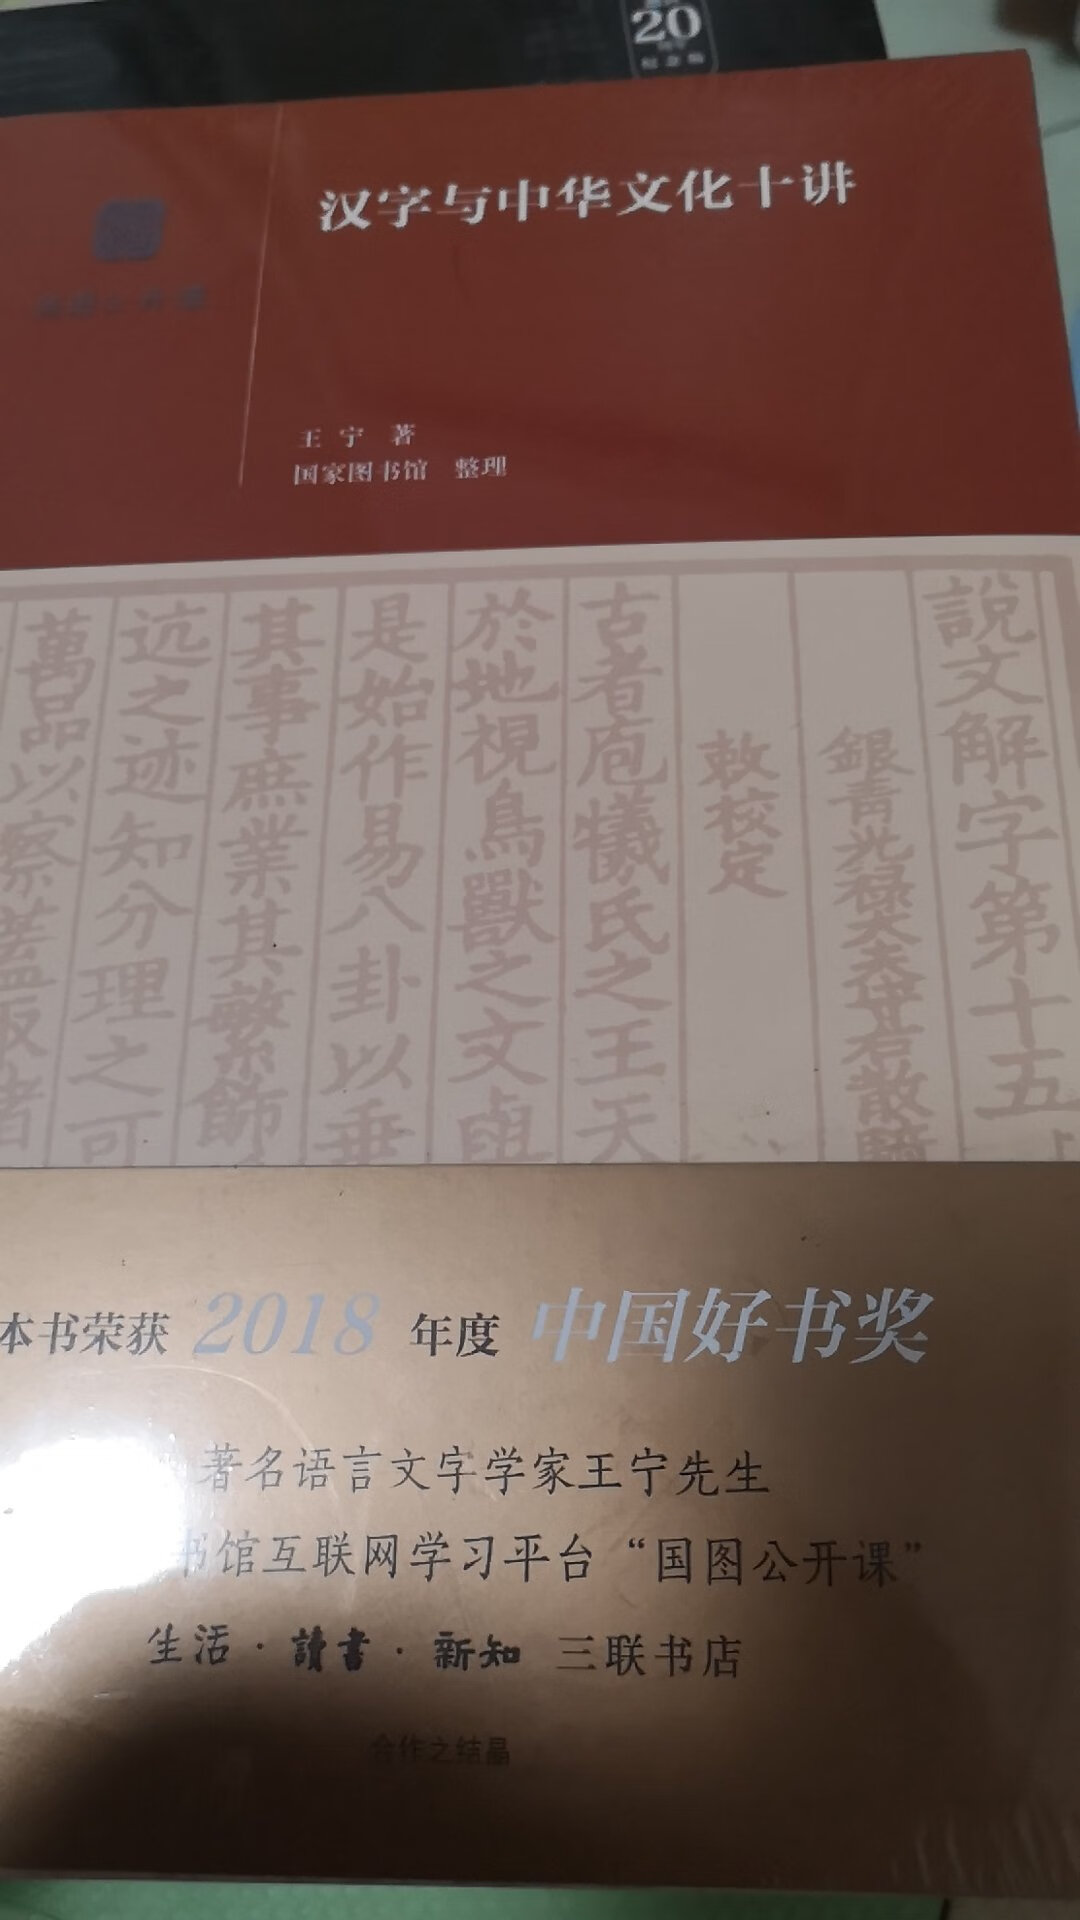 20
纪念版
汉字与中华文化十讲
国图公开课
王宁 著
国家图书馆 整理
說文解字第十五
銀青光祿大夫守右散騎
敕校定
古者庖犧氏之王天
於地視鳥獸之文與
是始作易八卦以垂
其事庶業其繁飾
远之迹知分理之可
萬品以察蓋取諸
本书荣获 2018 年度 中国好书奖
著名语言文字学家王宁先生
书馆互联网学习平台“国图公开课”
生活·讀書·新知 三联书店
合作之结晶